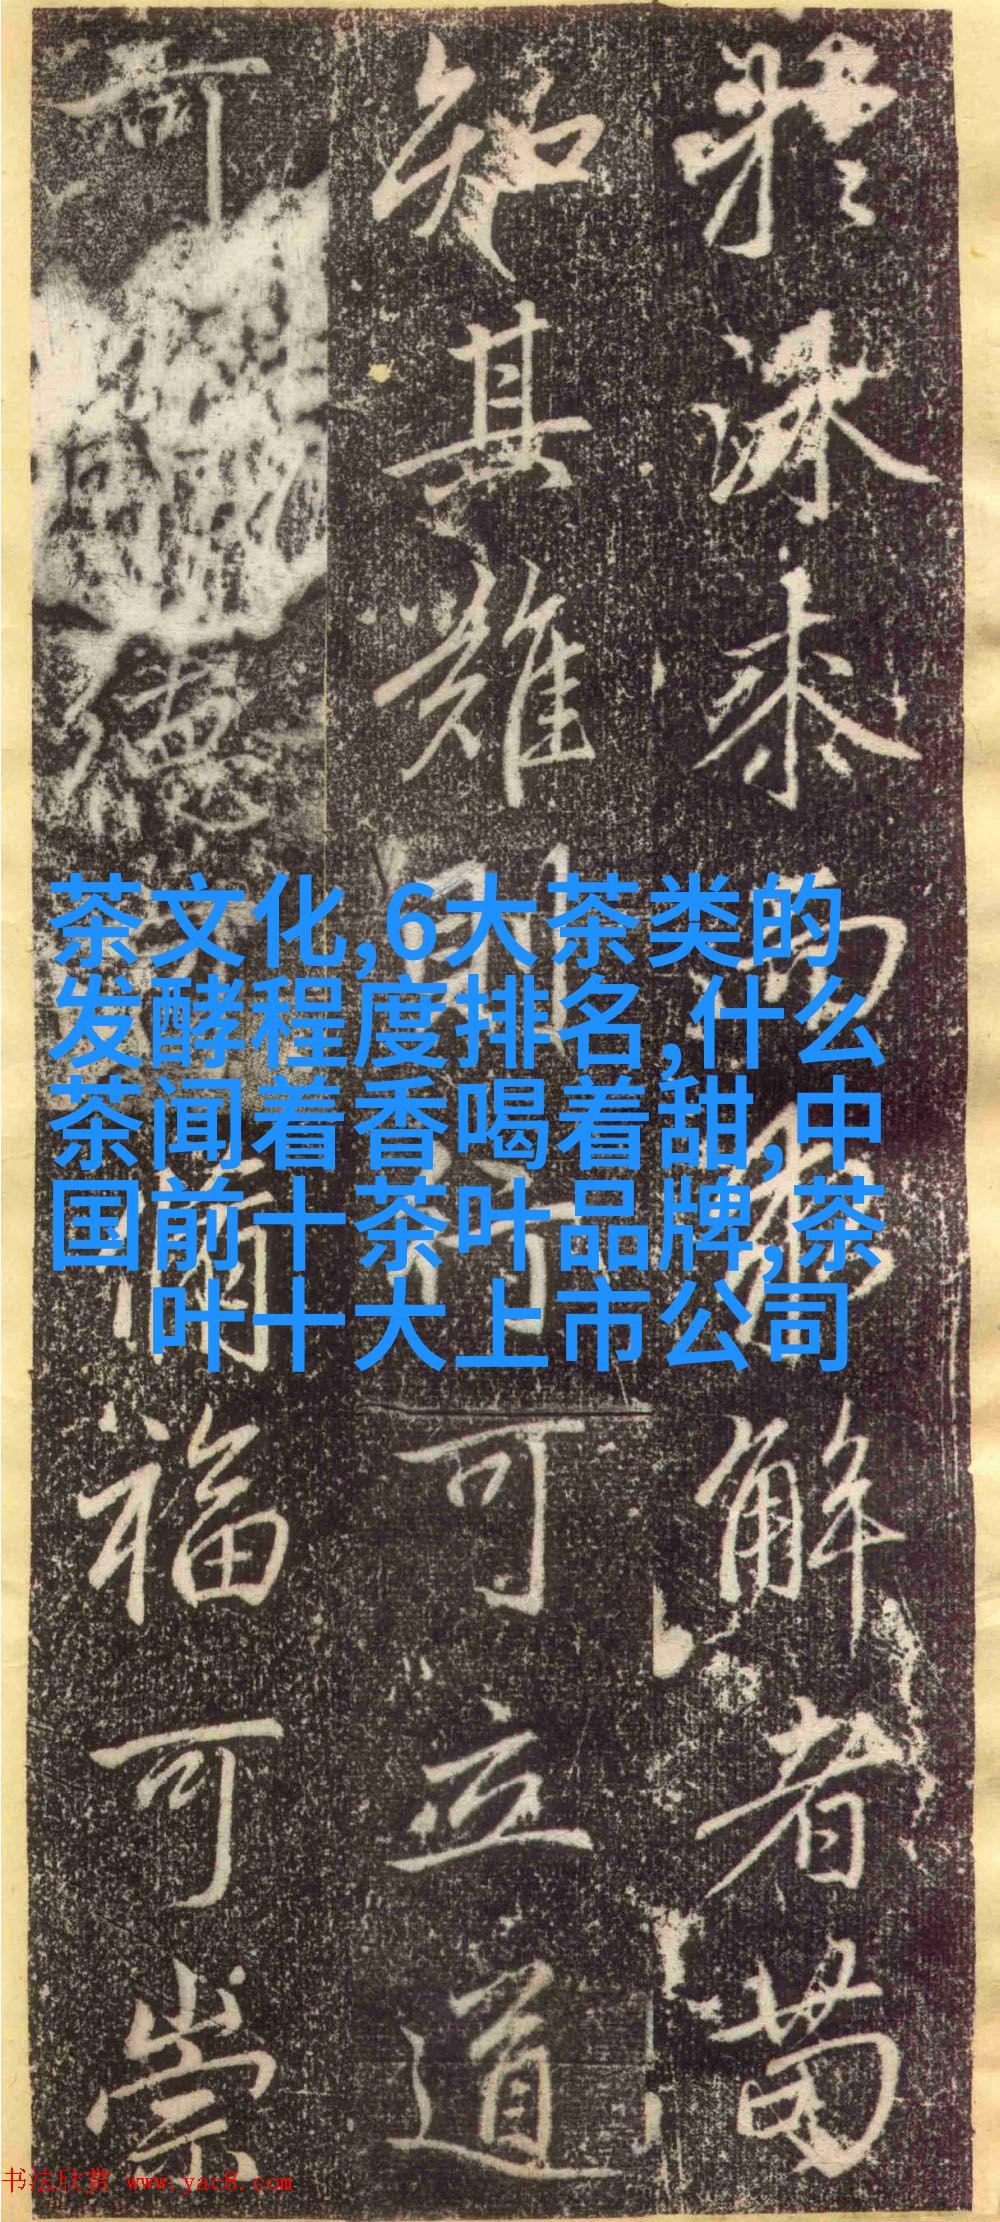 茶文化,6大茶类的
发酵程度排名,什么
茶闻着香喝着甜,中
国前十茶叶品牌,茶
叶十大上市公司
於深而解者
知其難則行可立道
可德福可崇
书法欣赏 www.yac8.com